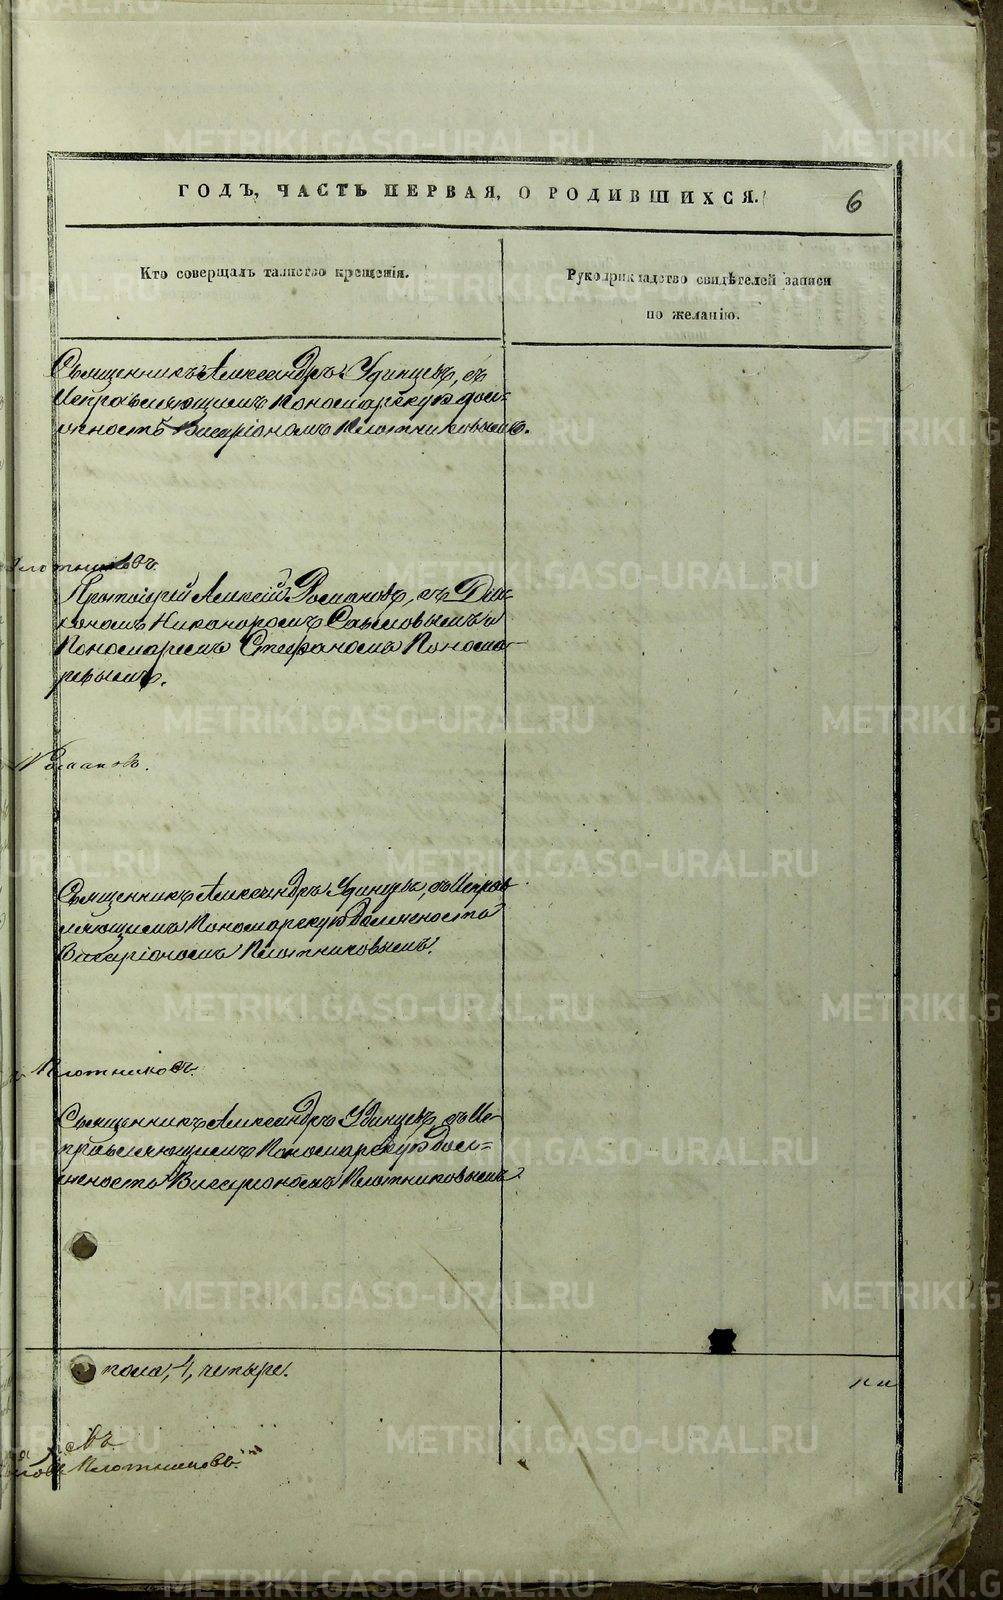 ГОДЪ, ЧАСТЬ ПЕРВАЯ, О РОДИВШИХСЯ.
6
Кто совершалъ таинство крещенія.
Рукоприкладство свидѣтелей записи
по желанію.
Священникъ Александръ Удинцевъ, съ
Исправляющимъ Пономарскую дол-
жность Виссаріономъ Плотниковымъ.
Плотниковъ.
Протоіерей Алексій Романовъ, съ Діа-
кономъ Никаноромъ
Пономаремъ Стефаномъ Понома-
ревымъ.
Романовъ.
Священникъ Александръ Удинцевъ, съ Исправ
ляющимъ Пономарскую Должность
Виссаріономъ Плотниковымъ.
Плотниковъ.
Священникъ Александръ Удинцевъ, съ Ис-
правляющимъ Пономарскую Дол-
жность Виссаріономъ Плотниковымъ.
пола, 4, четыре.
Плотниковъ.
METRIKI.GASO-URAL.RU